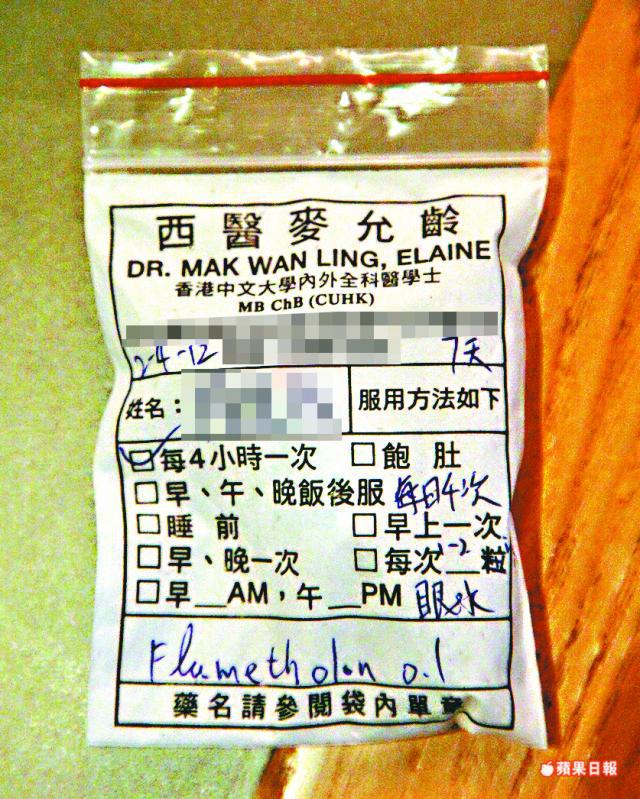 西醫麥允齡
DR. MAK WAN LING, ELAINE
香港中文大學內外全科醫學士
MB ChB (CUHK)
2-4-12 7天
姓名： 服用方法如下
每4小時一次 飽肚
早、午、晚飯後服 每日4次
睡前 早上一次
早、晚一次 每次1-2粒
早__AM，午__PM 眼水
Flumetholon 0.1
藥名請參閱袋內單章
蘋果日報